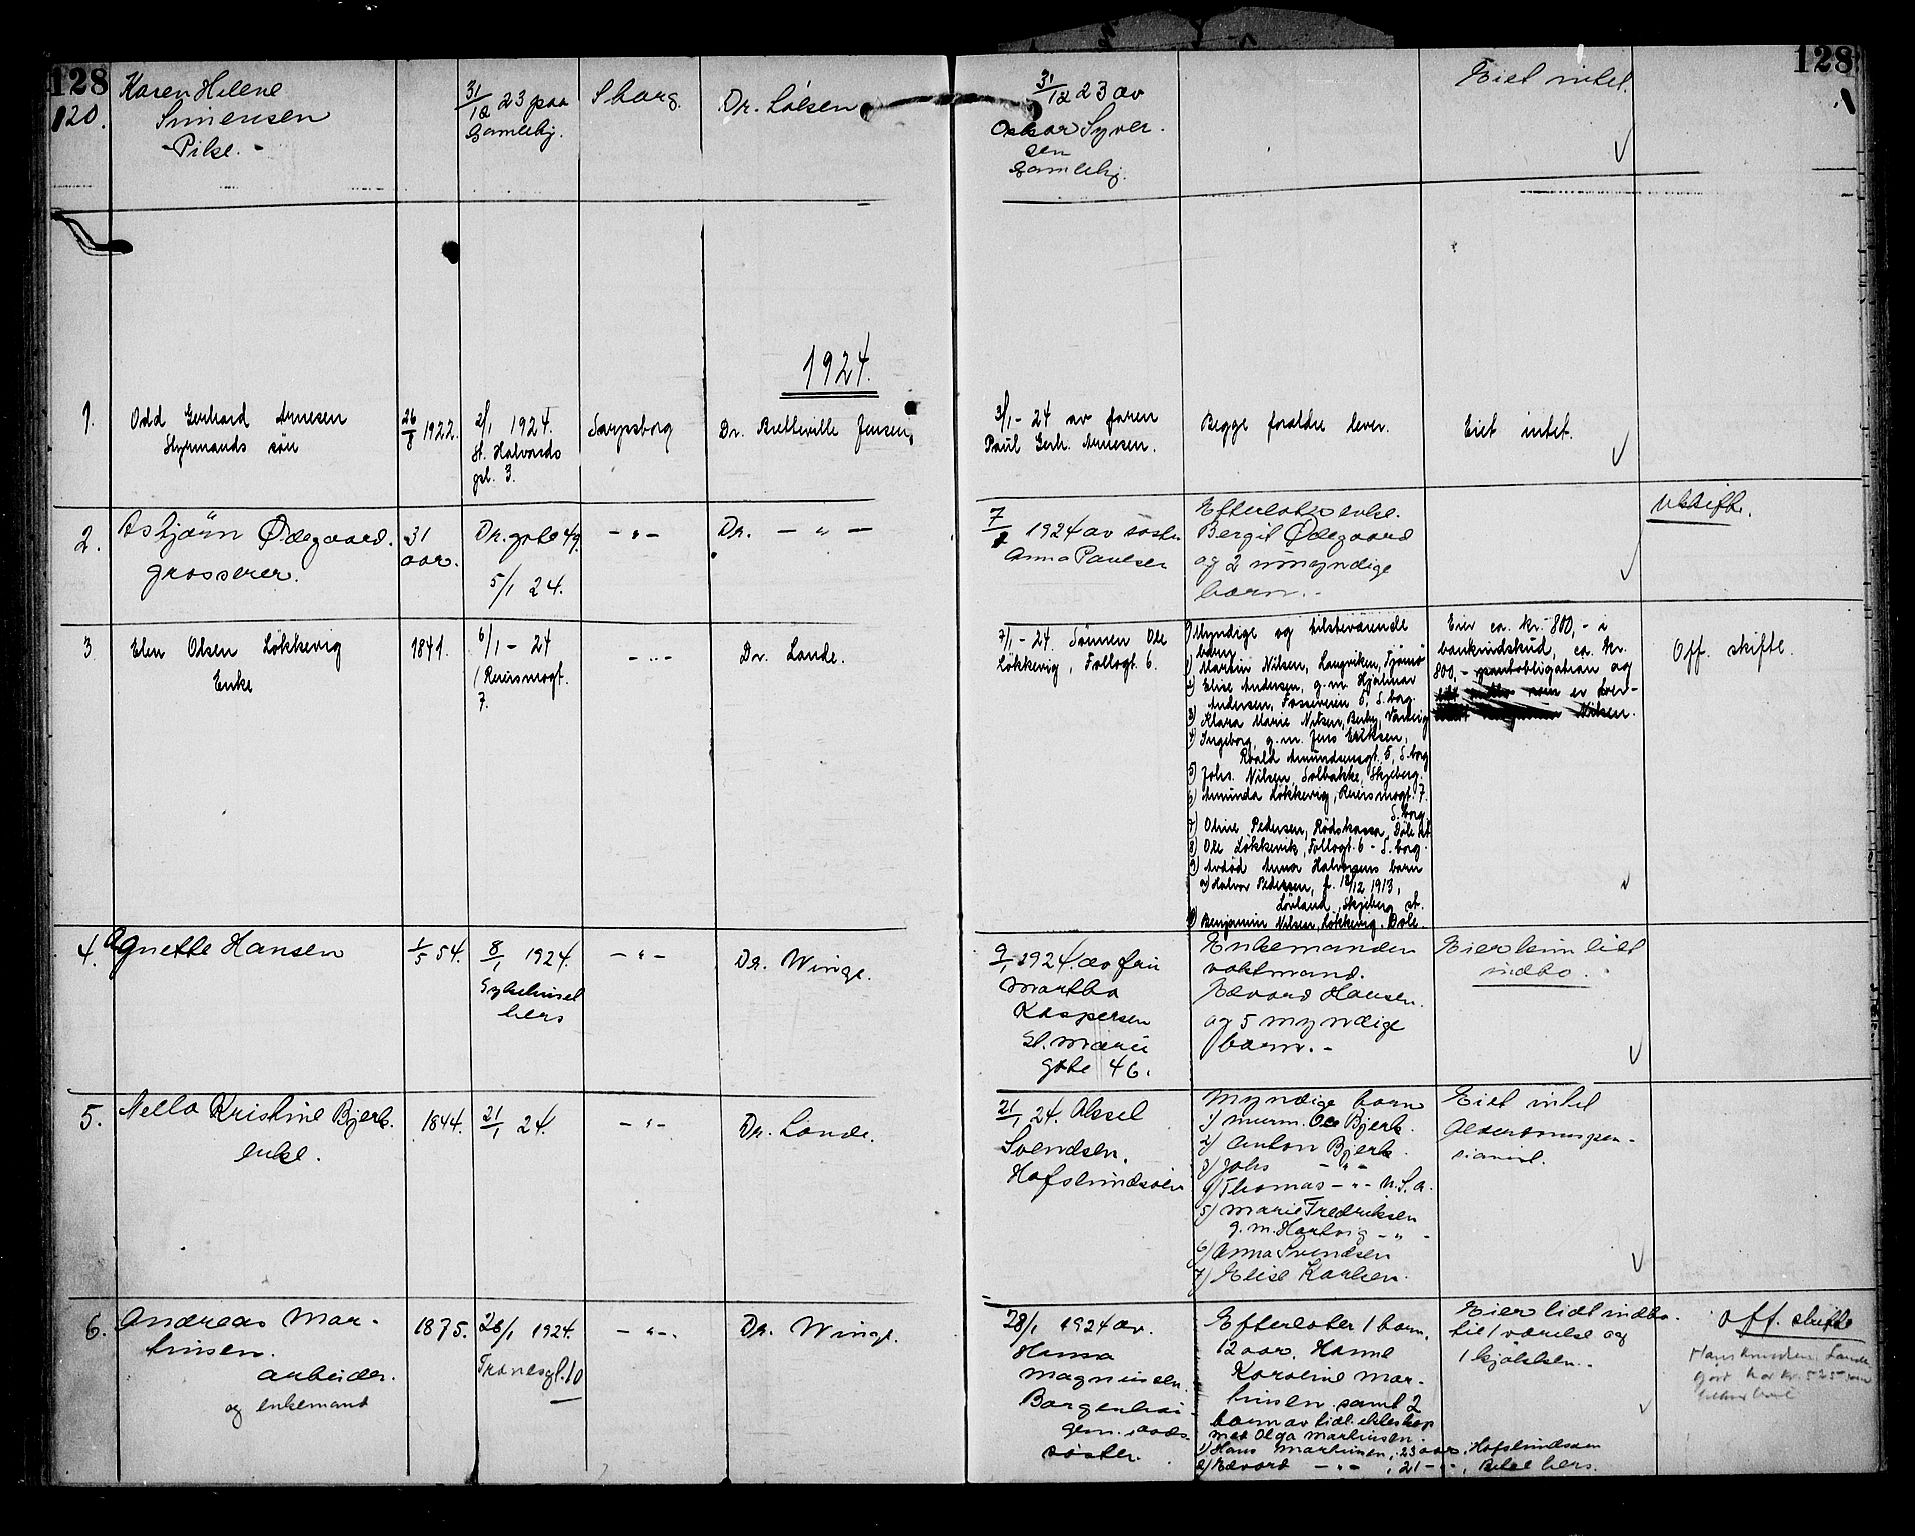 128
128
120.
Karen Helene
Simensen
- Pike. -
31/12 23 paa
Gamlehj.
Sborg.
Dr. Lølsen
31/12 23 av
Oskar Syver-
sen
Gamlehj.
Eiet intet.
1924.
1.
Odd Gerhard Arnesen
Styrmands søn
26/8 1922.
2/1 1924.
St. Halvards
gt. 3.
Sarpsborg
Dr. Bretteville Jensen
3/1 - 24 av faren
Paul Gerh. Arnesen.
Begge forældre lever.
Eiet intet.
2.
Asbjørn Ødegaard.
grosserer.
31
aar.
Dr. gate 49.
5/1 24.
- " -
Dr. - " -
7/1 1924 av søster
Anna Paulsen
Efterlater enke.
Bergit Ødegaard
og 2 umyndige
barn. -
Uskifte.
3
Elen Olsen Løkkevig
Enke
1841.
6/1 - 24
Reiersmogt.
7.
- " -
Dr. Lande.
7/1 - 24. Sønnen Ole
Løkkevig, Follogt. 6.
Myndige og tilstedeværende
barn
1) Martin Nilsen, Langviken, Tjømø
2) Elise Andersen, g.m. Hjalmar
Andersen, Fosseveien 5, S.borg
3) Klara Marie Nilsen, Berby,
4) Ingeborg, g.m. Jens Eriksen,
Roald Amundsensgt. 5, S.borg
5) Johs. Nilsen, Solbakke, Skjeberg.
6) Amunda Løkkevig, Reiersmogt. 7.
S.borg
7) Oline Pedersen,
8) Ole Løkkevik, Follogt. 6 - S.borg.
9) Avdød Anna Halvorsens barn
a) Halvor Pedersen, f. 18/12 1913,
Løvland, Skjeberg st.
10) Benjamin Nilsen, Løkkevig.
Eier ca. kr. 800,- i
bankindskud, ca. kr.
800,- pantobligation og
Nilsen.
Off. skifte.
4.
Agnette Hansen
1/5 54.
8/1 1924.
Sykehuset
hers
- " -
Dr. Winge.
9/1 1924. av fru
Martha
Kaspersen
St. Marie
gate 46.
Enkemanden
vaktmand.
Edvard Hansen.
og 5 myndige
barn. -
Eier kun litt
indbo.
5.
Nella Kristine Bjerk.
enke.
1844.
21/1 24.
- " -
Dr. Lande.
21/1 24. Aksel
Svendsen.
Hafslundsøen
Myndige barn
1) murm. Ole Bjerk.
2) Anton Bjerk.
3) Johs - " -
4) Thomas - " - U.S.A.
5) Marie Fredriksen
g.m. Hartvig - " -
6) Anna Svendsen
7) Elise Karlsen.
Eiet intet
Alderdomspen-
sionist.
6.
Andreas Mar-
tinsen.
arbeider.
og enkemand
1875.
26/1 1924.
Tranesgt. 10
- " -
Dr. Winge.
28/1 1924 av.
Hanna
Magnussen
Borgenhau-
gen.
søster.
Efterlater 1 barn,
12 aar. Hanne
Karoline Mar-
tinsen samt 2
barn av tidl. ekteskap
med Olga Martinsen.
1) Hans Martinsen, 23 aar, Hafslundsøen
2) Edvard - " - , 21 - " - , hers.
Eier litt indbo.
til 1 værelse og
1 kjøkken. -
Off. skifte